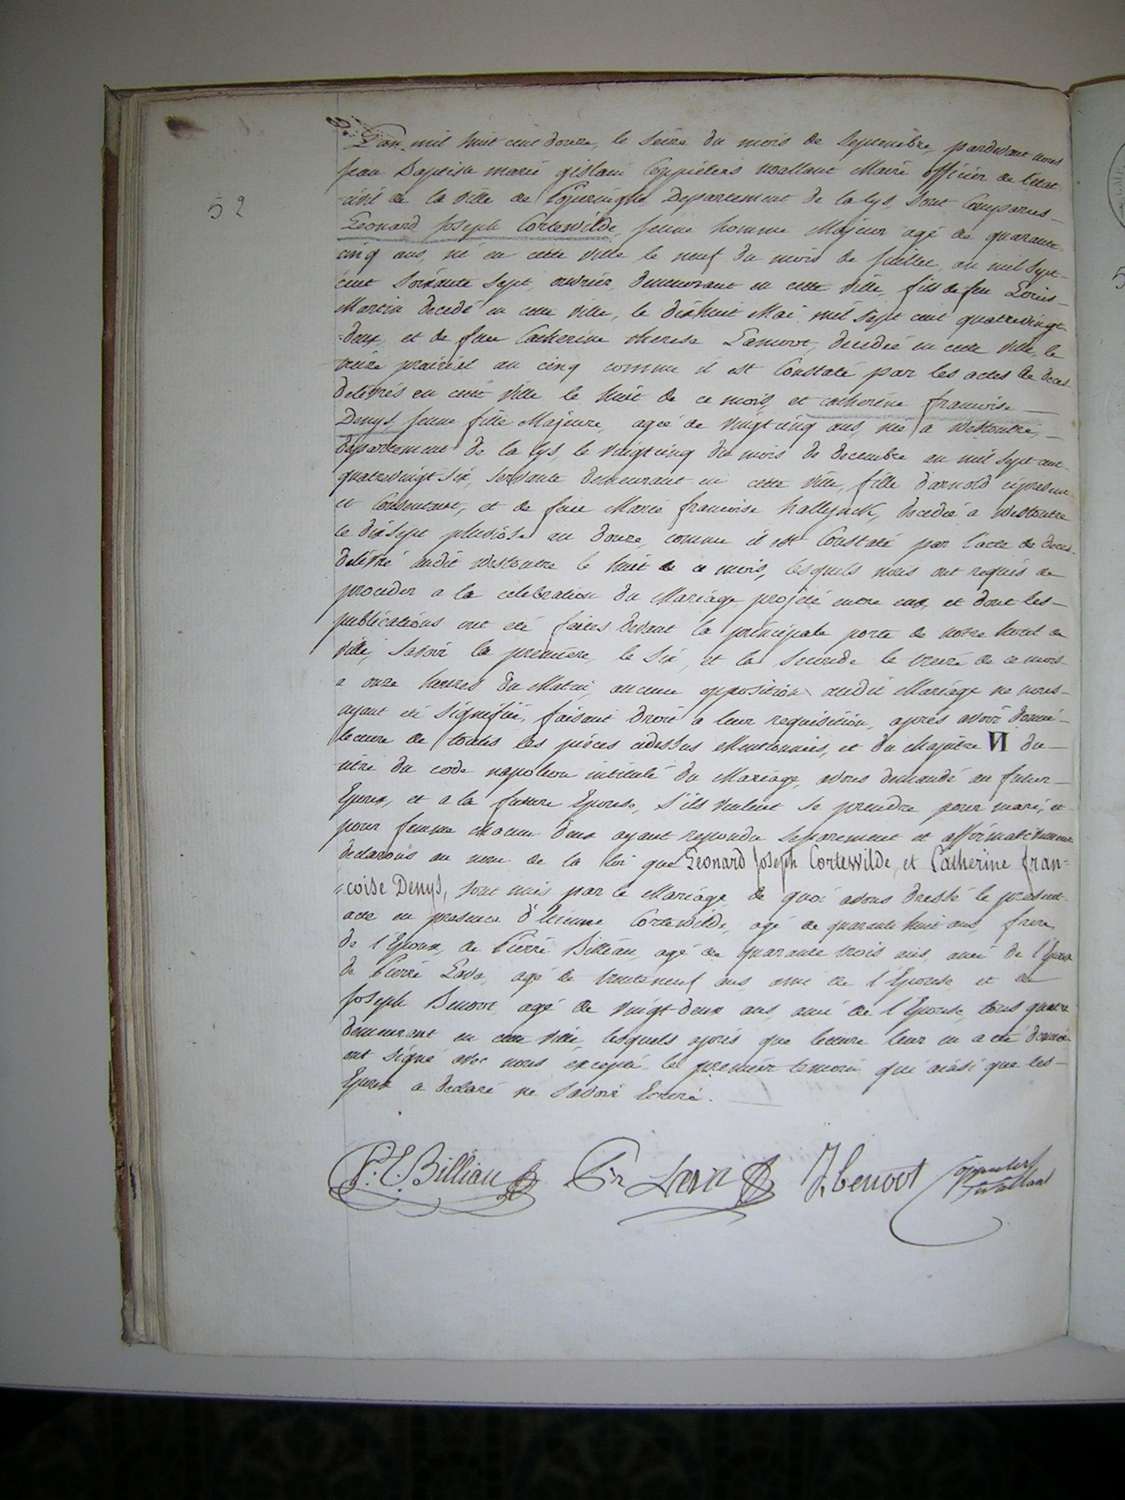 52
L'an mil huit cent douze, le seize du mois de Septembre, pardevant nous
Jean Baptiste marie gislain Coppieters wallant Maire officier de l'etat
civil de la ville de Poperinghe Departement de la Lys, sont Comparus
Léonard Joseph Cortewilde, jeune homme Majeur agé de quarante
cinq ans, né en cette ville le neuf du mois de Juillet, an mil sept
cent soixante sept, ouvrier, demeurant en cette ville, fils de feu Louis
Martin decedé en cette ville, le dixhuit Mai mil sept cent quatrevingt
deux, et de feue Catherine therese Lamoot, decedée en cette ville, le
treize prairial an cinq comme il est Constaté par les actes de deces
délivrés en cette ville le huit de ce mois, et catherine francoise
Denys, jeune fille Majeure, agée de vingt cinq ans, née a Westoutre,
departement de la Lys, le vingt cinq du mois de decembre an mil sept cent
quatrevingt six, servante demeurant en cette ville, fille d'arnold ci present
et Consentant, et de feue Marie francoise hallyack, decedée a Westoutre
le dixsept pluviose an douze, comme il est Constaté par l'acte de deces
delivré audit Westoutre le huit de ce mois, lesquels nous ont requis de
proceder a la célébration du Mariage projeté entre eux, et dont les
publications ont été faites devant la principale porte de notre hotel de
ville, savoir la premiere, le six, et la seconde le treize de ce mois
a onze heures du Matin, aucune opposition audit Mariage ne nous
ayant été signifiée, faisant droit a leur requisition, après avoir donné
lecture de toutes les pièces cidessus Mentionnées, et du chapitre VI du
titre du code napoléon intitulé du Mariage, avons demandé au futur
Epoux, et a la future Epouse, s'ils veulent se prendre pour mari, et
pour femme chacun deux ayant repondu separement et affirmativement
declarons au nom de la loi que Léonard Joseph Cortewilde, et Catherine fran-
coise Denys, sont unis par le Mariage, de quoi avons dressé le present
acte en presence d'Etienne Cortewilde, agé de quarante huit ans, frere
de l'Epoux, de Pierre Billiau, agé de quarante trois ans, ami de l'Epoux
de Pierre agé de trenteneuf ans ami de l'Epouse et de
Joseph Benoot, agé de vingt deux ans, ami de l'Epouse, tous quatre
demeurant en cette ville, lesquels après que lecture leur en a été donnée
ont signé avec nous, excepté le premier temoin qui ainsi que les
Epoux a declaré ne savoir Ecrire.
Billiau J. Benoot Coppieters
Wallant